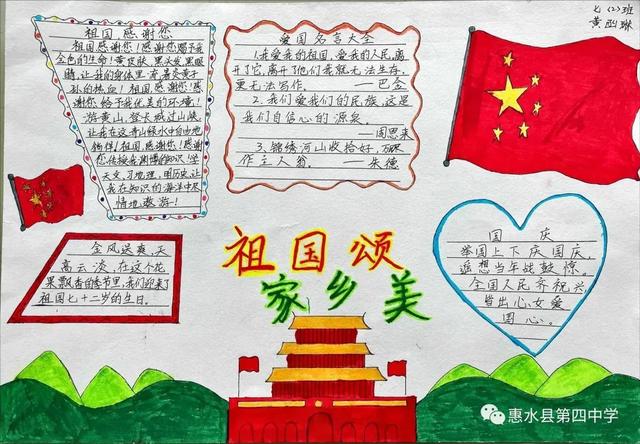 七(2)班
祖国 感谢您
祖国感谢您!感谢您赐予我
金色的生命!黄皮肤,黑头发,黑眼
睛,让我的身体里流
孙的热血!祖国,感谢您!感
谢您给予我优美的环境!
游黄山,登长城过山峡,
让我在这青山绿水中自由地
徜徉!祖国,感谢您!感谢
您传授我渊博的知识!学
天文,习地理,明历史,让
我在知识的海洋中尽
情地遨游!
爱国名言大全
1.我爱我的祖国,爱我的人民,离
开了它,离开了他们,我就无法生存,
更无法写作。 —巴金
2.我们爱我们的民族,这是
我们自信心的源泉。
—周恩来
3.锦绣河山收拾好,万民尽
作主人翁。 —朱德
金风送爽,天
高云淡,在这个花
果飘香的季节里,我们迎来了
祖国七十二岁的生日。
祖国颂
家乡美
国 庆
举国上下庆国庆,
遥想当年战鼓擂。
全国人民齐祝兴,
皆出心女爱
国心。
惠水县第四中学